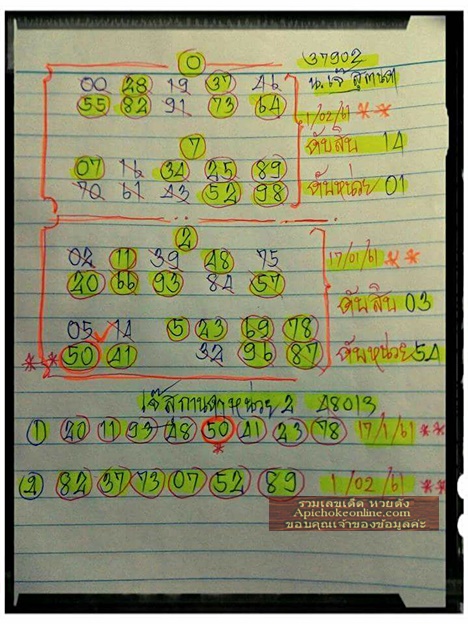 0 37902
00 28 19 37 46 น.เจ๊สุกานดา
55 82 91 73 64 1/02/61 **
7 ดับสิบ 14
07 16 34 25 89
70 61 43 52 98 ดับหน่วย 01
2
02 11 39 48 75 17/01/61 **
20 66 93 84 57
ดับสิบ 03
05 14 5 23 69 78
** 50 41 32 96 87 ดับหน่วย 54
เจ๊สุกานดาหน่วย 2 48013
1 20 11 93 48 50 41 23 78 17/1/61 **
*
2 82 37 73 07 52 89 1/02/61 **
รวมเลขเด็ด หวยดัง
Apichokeonline.com
ขอบคุณเจ้าของข้อมูลค่ะ